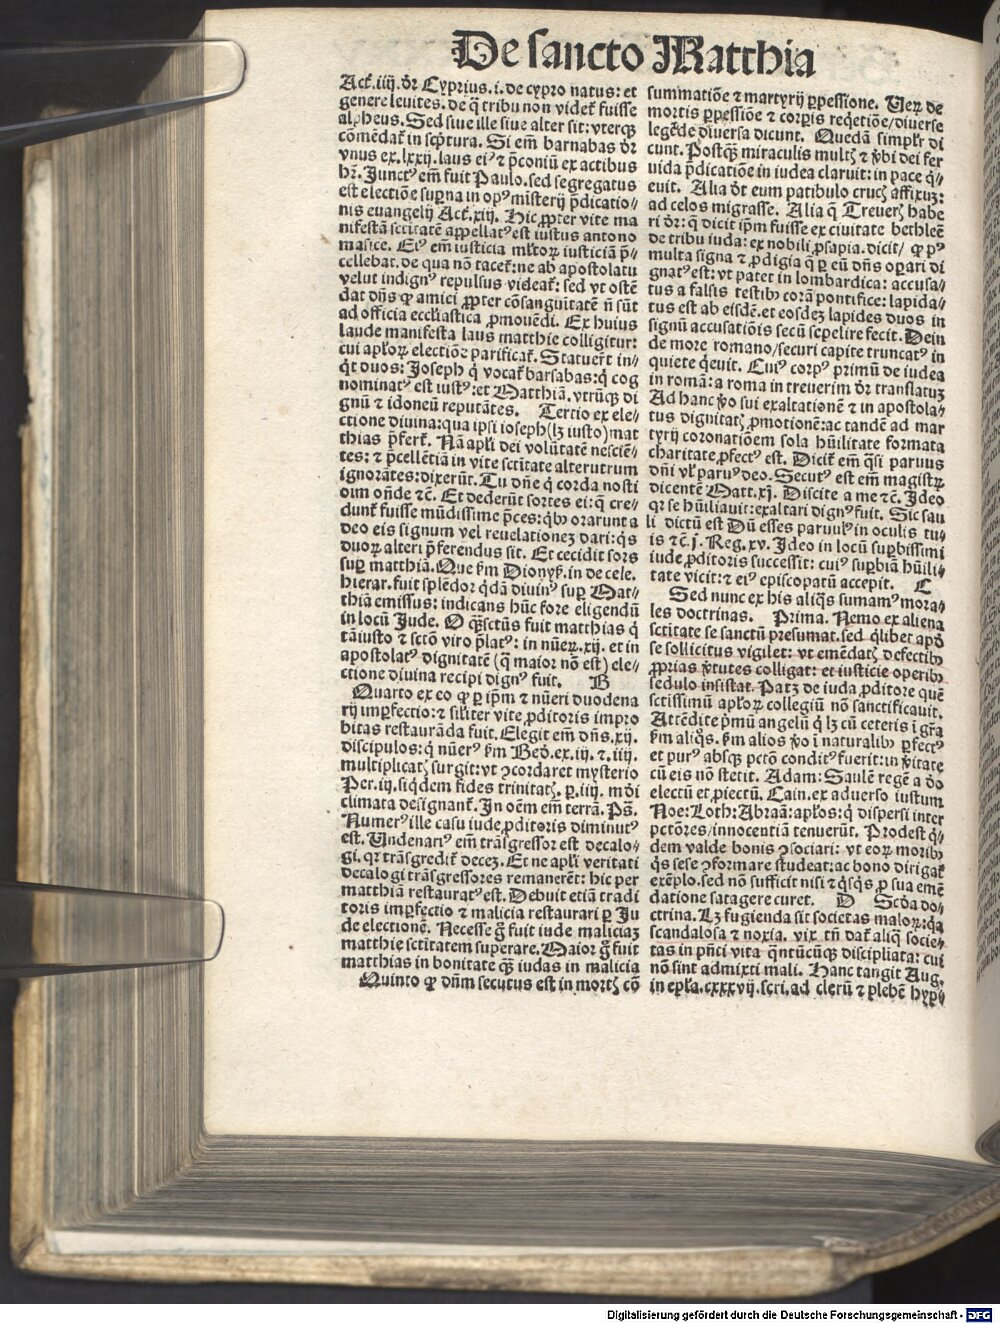 De sancto Matthia
Act̃. iiij. dr̃ Cyprius. i. de cypro natus: et
genere leuites. de q̃ tribu non videt̃ fuisse
alpheus. Sed siue ille siue alter sit: vterqꝫ
cõmẽdat̃ in scp̃tura. Si em̃ barnabas dr̃
vnus ex. lxxij. laus eiꝰ ⁊ p̃coniũ ex actibus
hr̃. Junctꝰ em̃ fuit Paulo. sed segregatus
est electiõe sup̱na in opꝰ misterij p̃dicatio⸗
nis euangelij Act̃. xiij. Hic ꝓpter vite ma
nifestã sctitatẽ appellatꝰ est iustus antono
masice. Eiꝰ em̃ iusticia mltoꝝ iusticiã p̃⸗
cellebat. de qua nõ tacet̃: ne ab apostolatu
velut indignꝰ repulsus videat̃: sed vt ostẽ
dat dñs ꝙ amici ꝓpter cõsanguitatẽ ñ sũt
ad officia eccłiastica ꝓmouẽdi. Ex huius
laude manifesta laus matthie colligitur:
cui apłoꝝ electiõe parificat̃. Statuer̃t in⸗
q̃t duos: Joseph q̃ vocat̃ barsabas: q̃ cog
nominatꝰ est iustꝰ: et Matthiã. vtrũqꝫ di
gnũ ⁊ idoneũ reputãtes. Tertio ex ele⸗
ctione diuina: qua ipsi ioseph (lꝫ iusto) mat
thias p̃fert̃. Nã apłi dei volũtatẽ nesciẽ⸗
tes: ⁊ p̃cellẽtiã in vite sctitate alterutrum
ignorãtes: dixerũt. Tu dñe q̃ corda nosti
oim oñde ⁊c̃. Et dederũt sortes ei: q̃ cre⸗
dunt̃ fuisse mũdissime p̃ces: qbꝰ orarunt a
deo eis signum vel reuelationeꝫ dari: q̃s
duoꝝ alteri p̃ferendus sit. Et cecidit sors
sup̱ matthiã. Que km̃ Dionyẜ. in de cele.
hierar. fuit splẽdor q̃dã diuinꝰ sup̱ Mat⸗
thiã emissus: indicans hũc fore eligendũ
in locũ Jude. O qꝫsctũs fuit matthias q̃
tã iusto ⁊ sctõ viro p̃latꝰ: in nũeꝝ. xij. et in
apostolatꝰ dignitatẽ (q̃ maior nõ est) ele⸗
ctione diuina recipi dignꝰ fuit. B
Quarto ex eo ꝙ p̱ ip̃m ⁊ nũeri duodena
rij imp̱fectio: ⁊ siłiter vite ꝓditoris impro
bitas restaurãda fuit. Elegit em̃ dñs. xij.
discipulos: q̃ nũerꝰ km̃ Bed̃. ex. iij. ⁊. iiij.
multiplicatꝭ surgit: vt ꝯcordaret mysterio
Per. iij. siq̃dem fides trinitatꝭ. p̱. iiij. mũdi
climata designant̃. In oẽm em̃ terrã. Ps̃.
Numerꝰ ille casu iude ꝓditoris diminutꝰ
est. Undenariꝰ em̃ trãsgressor est decalo⸗
gi. qꝛ trãsgredit̃ deceꝫ. Et ne apłi veritati
decalogi trãsgressores remanerẽt: hic per
matthiã restauratꝰ est. Debuit etiã tradi
toris imp̱fectio ⁊ malicia restaurari p̱ Ju
de electionẽ. Necesse g̃ fuit iude maliciaꝫ
matthie sctitatem superare. Maior g̃ fuit
matthias in bonitate qꝫ̃ iudas in malicia
Quinto ꝙ dñm secutus est in mortꝭ cõ
summatiõe ⁊ martyrij ꝑpessione. Ueꝝ de
mortis ꝑpessiõe ⁊ corp̱is reqetiõe/ diuerse
legẽde diuersa dicunt. Quedã simplr̃ di
cunt. Postqꝫ miraculis multꝭ ⁊ v̾bi dei fer
uida p̃dicatiõe in iudea claruit: in pace q̃⸗
euit. Alia dr̃t eum patibulo crucꝭ affixuꝫ:
ad celos migrasse. Alia q̃ Treuerꝭ habe
ri dr̃: q̃ dicit ip̃m fuisse ex ciuitate bethleẽ
de tribu iuda: ex nobili ꝓsapia. dicit/ ꝙ pꝰ
multa signa ⁊ ꝓdigia q̃ p̱ eũ dñs op̱ari di
gnatꝰ est: vt patet in lombardica: accusa⸗
tus a falsis testibꝰ corã pontifice: lapida⸗
tus est ab eisdẽ. et eosdeꝫ lapides duos in
signũ accusatiõis secũ sepelire fecit. Dein
de more romano/ securi capite truncatꝰ in
quiete q̃euit. Cuiꝰ corpꝰ primũ de iudea
in romã: a roma in treuerim dr̃ translatuꝫ
Ad hanc v̾o sui exaltationẽ ⁊ in apostola⸗
tus dignitatꝭ ꝓmotionẽ: ac tandẽ ad mar
tyrij coronatiõem sola hũilitate formata
charitate ꝑfectꝰ est. Dicit̃ em̃ q̃si paruus
dñi vł paruꝰ deo. Secutꝰ est em̃ magistꝝ
dicentẽ Matt. xj. Discite a me ⁊c̃. Ideo
qꝛ se hũiliauit: exaltari dignꝰ fuit. Sic sau
li dictũ est Dũ esses paruulꝰ in oculis tu⸗
is ⁊c̃. j. Reg. xv. Ideo in locũ sup̱bissimi
iude ꝓditoris successit: cuiꝰ sup̱biã hũili⸗
tate vicit: ⁊ eiꝰ episcopatũ accepit. C
Sed nunc ex his aliq̃s sumamꝰ mora⸗
les doctrinas. Prima. Nemo ex aliena
sctitate se sanctũ presumat. sed q̃libet apd̃
se sollicitus vigilet: vt emẽdatꝭ defectibꝰ
ꝓprias v̾tutes colligat: et iusticie operibꝰ
sedulo insistat. Patꝫ de iuda ꝓditore quẽ
sctissimũ apłoꝝ collegiũ nõ sanctificauit.
Attẽdite p̾mũ angelũ q̃ lꝫ cũ ceteris ĩ gr̃a
km̃ aliq̃s. km̃ alios v̾o ĩ naturalibꝰ ꝑfectꝰ
et purꝰ absqꝫ pctõ conditꝰ fuerit: in v̾itate
cũ eis nõ stetit. Adam: Saulẽ regẽ a deo
electũ et ꝓiectũ. Cain. ex aduerso iustum
Noe: Loth: Abraã: apłos: q̃ dispersi inter
pctõres/ innocentiã tenuerũt. Prodest q̃⸗
dem valde bonis ꝯsociari: vt eoꝝ moribꝰ
q̃s sese ꝯformare studeat: ac bono dirigat̃
exẽplo. sed nõ sufficit nisi ⁊ q̃sqꝫ ꝓ sua emẽ
datione satagere curet. D Scd̃a do⸗
ctrina. Lꝫ fugienda sit societas maloꝝ: q̃a
scandalosa ⁊ noxia. vix tñ dat̃ aliq̃ socie⸗
tas in pñti vita q̃ntũcũqꝫ discipliata: cui
nõ sint admixti mali. Hanc tangit Aug.
in epła. cxxxvij. scri. ad clerũ ⁊ plebẽ hyp̱⸗
Digitalisierung gefördert durch die Deutsche Forschungsgemeinschaft - DFG